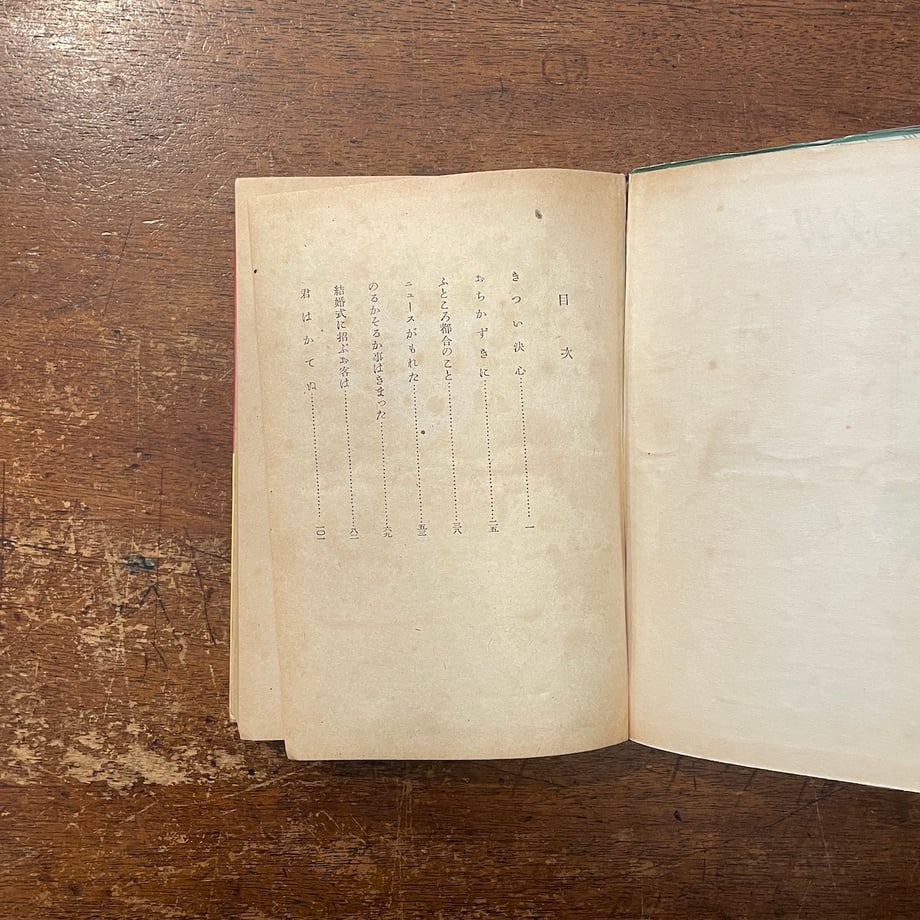 目次
きつい決心……一
おちかずきに……二五
ふところ都合のこと……三八
ニュースがもれた……五三
のるかそるか事はきまった……六九
結婚式に招ぶお客は……八二
君はかてぬ……一〇一